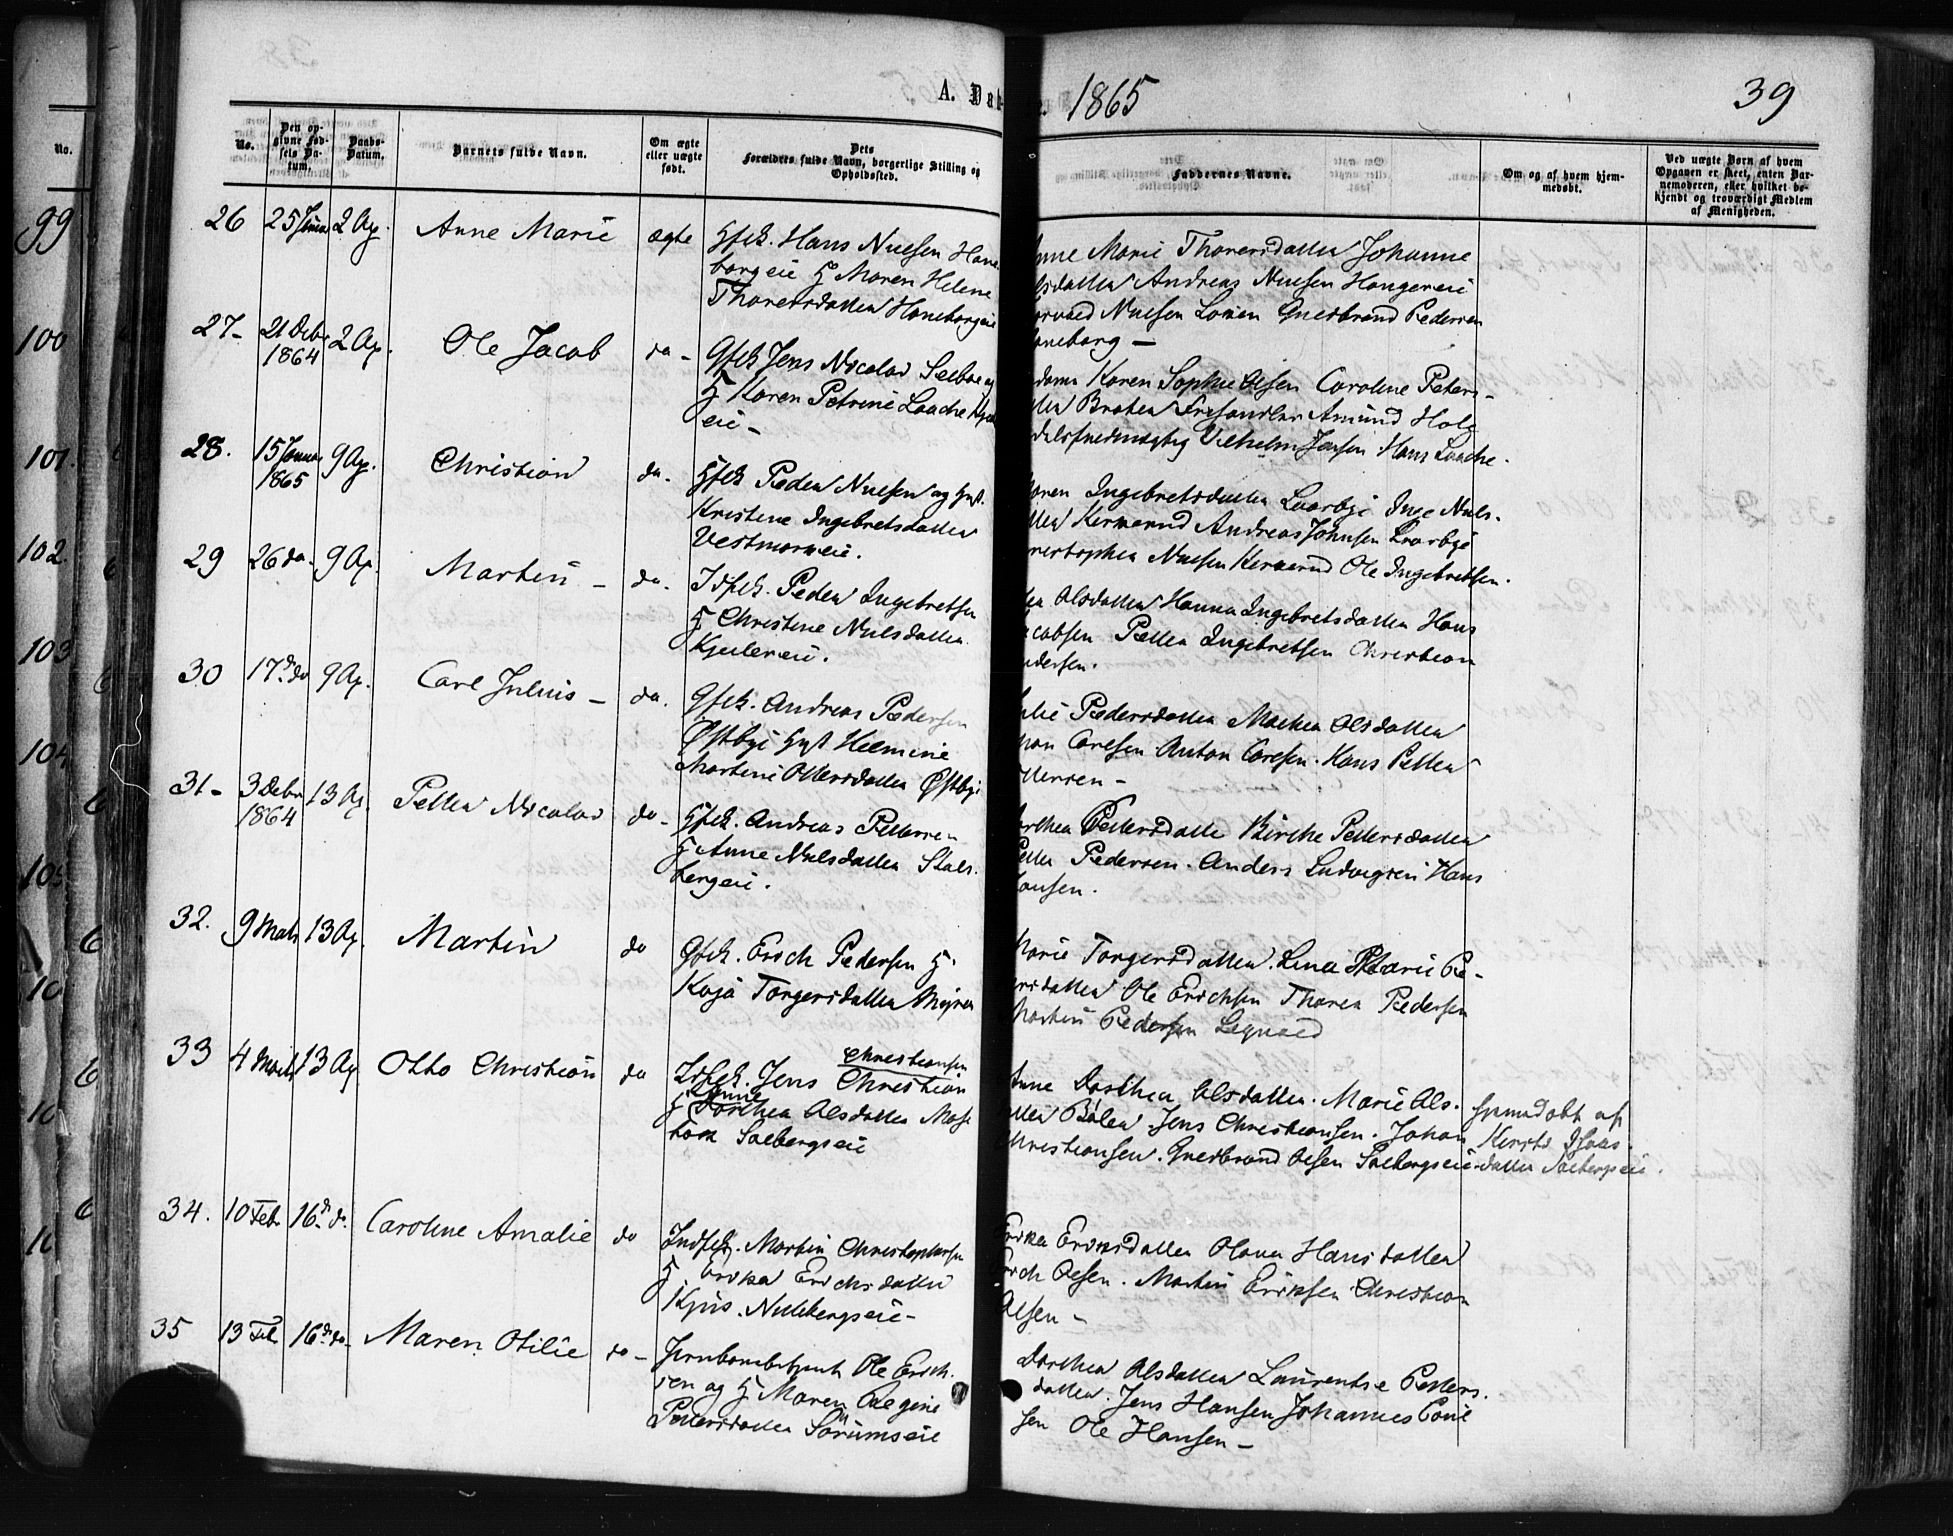 A. Dab
1865
39
No.
No.
Den op-
givne Fød-
sels Da-
tum.
Daabs-
Datum.
Barnets fulde Navn.
Om ægte
eller uægte
født.
Dets
Forældres fulde Navn, borgerlige Stilling og
Opholdssted.
Faddernes Navne.
Om og af hvem hjem-
medøbt.
Ved uægte Børn af hvem
Opgaven er skeet, enten Bar-
nemoderen, eller hvilket be-
kjendt og troværdigt Medlem
af Menigheden.
99
100
101.
102.
103
104
105
26 25 Janua 2 Ap. Anne Marie ægte Gfslk. Hans Nilsen Hane-
borgeie H Maren Helene
Thoresdatter Haneborgeie
nne Marie Thoresdatter Johanne
lsdatter Andreas Nilsen Haugereie
orvald Nilsen Loken Gulbrand Pedersen
aneborg —
27- 21 Debr 1864 2 Ap. Ole Jacob do - Gfslk Jens Nicolai Sælboe og
H Karen Petrine Laache
eie -
dame Karen Sophie Olsen Caroline Peters-
tter Braten Amund Holg
Vilhelm Jensen. Hans Laache.
28. 15 Janua 1865 9 Ap. Christian do. Gfslk Peder Nilsen og Hust.
Kristine Ingebretsdatter
Vestmoreneie.
aren Ingebretsdatter Laarbye Inge Nils-
tter Kirkerud Andreas Johnsen Laarbye
ristopher Nilsen Kirkerud Ole Ingebretsen.
29 26 do. 9 Ap. Martin - do. Idfslk. Peder Ingebretsen
H Christine Nilsdatter
Kjellereie.
Olsdatter Hanna Ingebretsdatter Hans
cobsen Petter Ingebretsen Christian
ndersen.
30 17 do 9 Ap. Carl Julius - do. Gfslk. Andreas Pedersen
Østbye Hust Helmine
Martine Ottersdatter Østbye
ulie Pedersdatter Mathea Olsdatter
Carlsen Anton Carlsen. Hans Petter
ttersen -
31- 3 Debr 1864 13 Ap. Petter Nicolai do- Gfslk. Andreas Pettersen
H Anne Nilsdatter Stals-
bergeie.
rthea Pettersdatte Birthe Pettersdatter
Petter Pedersen. Anders Ludvigsen Hans
ansen.
32. 9 Mats 13 Ap. Martin do Gfslk. Erich Pedersen H.
Kaja Torgersdatter Myrer
Marie Torgersdatter. Lina Marie Pe-
ersdatter Ole Erichsen Thorer Pedersen
Martin Pedersen Lignaed
33 4 Marts 13 Ap Otto Christian do Idfslk. Jens Christian
Christiansen
H Anne Dorthea Olsdatter
Solbergseie
Anne Dorthea Olsdatter. Marie Ols-
tter Bølen Jens Christiansen. Johan
Christiansen. Gulbrand Olsen Solbergseie
hjemdøbt af
Kirsti Isaks-
datter Solbergseie.
34. 10 Febr 16 do. Caroline Amalie do Indfslk. Martin Christophersen
H. Erika Erichsdatter
Kjus. Nittebergseie-
Erika Ericksdatter Olava Hansdatter
Erich Olsen. Martin Eriksen Christian
Olsen -
35 13 Feb 16 do. Maren Otilie do - Jernbanebetjent Ole Erich-
sen og H Maren Regine
Pettersdatter Sørumseie
Dorthea Olsdatter Laurentse Petters-
datter. Jens Hansen Johannes Paul
sen Ole Hansen -